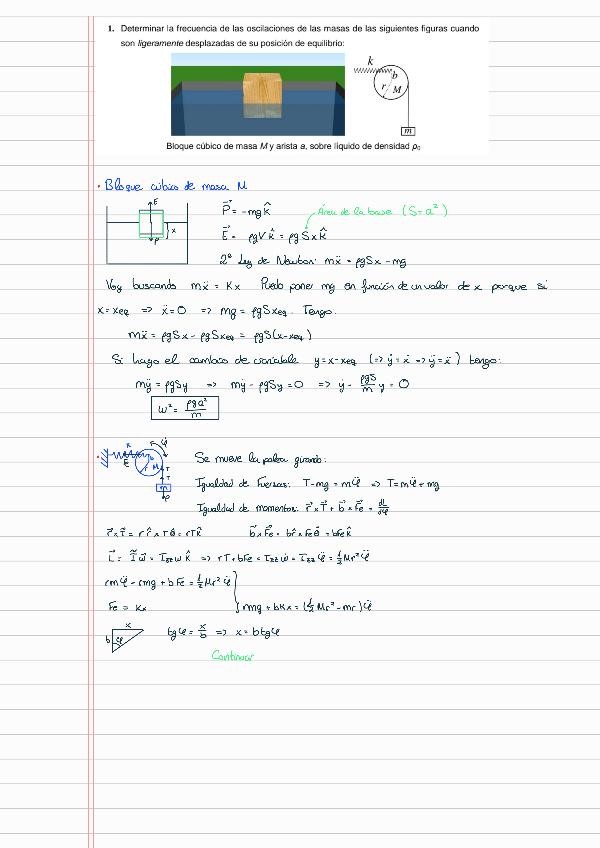 1. Determinar la frecuencia de las oscilaciones de las masas de las siguientes figuras cuando
son ligeramente desplazadas de su posición de equilibrio:
k
b
r M
m
Bloque cúbico de masa M y arista a, sobre líquido de densidad ρ₀
• Bloque cúbico de masa M
E
x
P
P⃗ = -mg k̂
Área de la base (S=a²)
E⃗ = ρgV k̂ = ρg S x k̂
2ª Ley de Newton: mẍ = ρgSx - mg
Voy buscando mẍ = Kx Puedo poner mg en función de un valor de x porque si
x = xeq => ẍ = 0 => mg = ρgSxeq. Tengo:
mẍ = ρgSx - ρgSxeq = ρgS(x-xeq)
Si hago el cambio de variable y = x-xeq (=> ẏ = ẋ => ÿ = ẍ) tengo:
mÿ = ρgSy => mÿ - ρgSy = 0 => ÿ - ρgS/m y = 0
ω² = ρga²/m
Se mueve la polea girando:
Igualdad de Fuerzas: T-mg = mφ̈ => T = mφ̈ + mg
Igualdad de momentos: r⃗ x T⃗ + b⃗ x F⃗e = dL⃗/dφ
r⃗ x T⃗ = r r̂ x Tθ̂ = rT k̂ b⃗ x F⃗e = b r̂ x Feθ̂ = bFe k̂
=> rT + bFe = Izz ω̇ = Izz φ̈ = ½Mr²φ̈
rmφ̈ - rmg + bFe = ½Mr²φ̈
Fe = Kx
rmg + bKx = (½Mr² - mr)φ̈
x
b φ
tgφ = x/b => x = b tgφ
Continuar